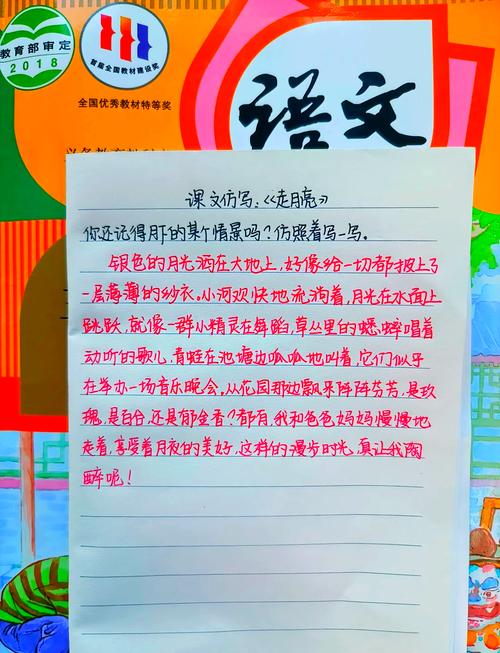 教育部审定
2018
首届全国教材建设奖
全国优秀教材特等奖
语文
课文仿写:《走月亮》
你还记得月下的某个情景吗?仿照着写一写。
银色的月光洒在大地上,好像给一切都披上了
一层薄薄的纱衣。小河欢快地流淌着,月光在水面上
跳跃,就像一群小精灵在舞蹈,草丛里的蟋蟀唱着
动听的歌儿,青蛙在池塘边呱呱地叫着,它们似乎
在举办一场音乐晚会。从花园那边飘来阵阵芬芳,是玫
瑰,是百合,还是郁金香?都有,我和爸爸妈妈慢慢地
走着,享受着月夜的美好,这样的漫步时光,真让我陶
醉呢!